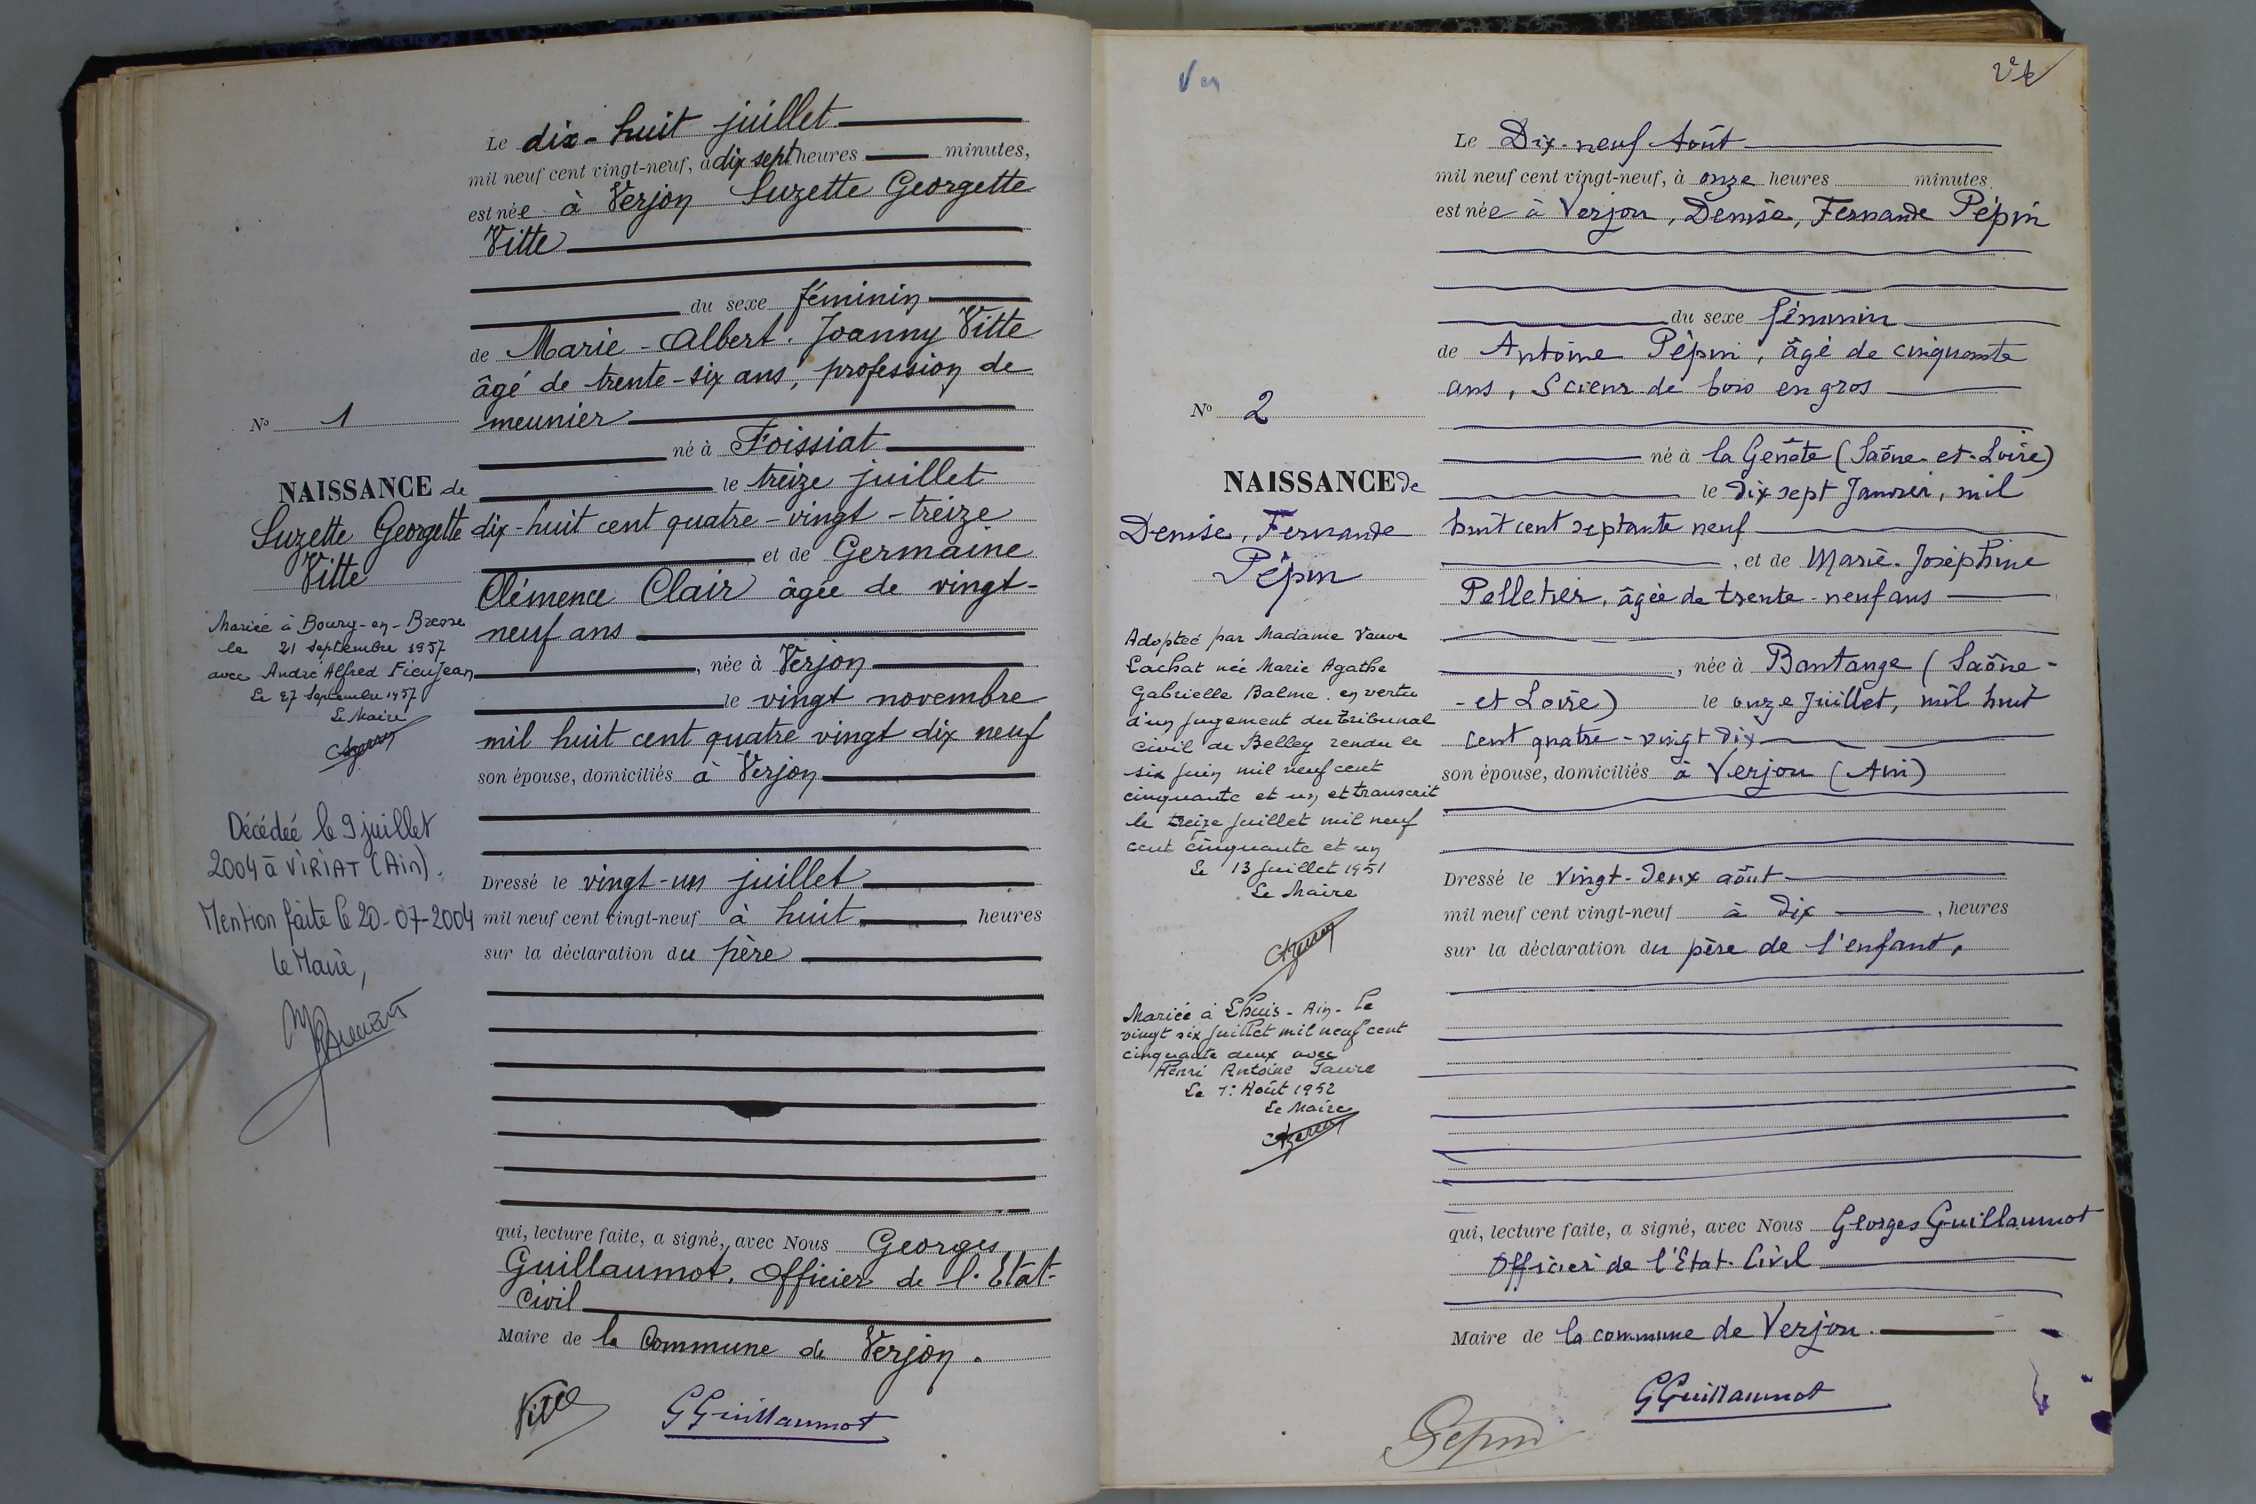 Le dix-huit juillet
mil neuf cent vingt-neuf, à dix sept heures minutes,
est née à Verjon Suzette Georgette
Vitte
du sexe féminin
de Marie-Albert. Joanny Vitte
âgé de trente-six ans, profession de
meunier
né à Foissiat
le treize juillet
dix-huit cent quatre-vingt-treize
et de Germaine
Clémence Clair âgée de vingt-
neuf ans
, née à Verjon
le vingt novembre
mil huit cent quatre vingt dix neuf
son épouse, domiciliés à Verjon
Dressé le vingt-un juillet
mil neuf cent vingt-neuf à huit heures
sur la déclaration du père
qui, lecture faite, a signé, avec Nous Georges
Guillaumot. Officier de l'Etat-
Civil
Maire de la Commune de Verjon.
Vitte GGuillaumot
No 1
NAISSANCE de
Suzette Georgette
Vitte
Mariée à Bourg-en-Bresse
le 21 septembre 1957
avec André Alfred Fieujean
Le 27 Septembre 1957
Le Maire
Décédée le 9 juillet
2004 à VIRIAT (Ain).
Mention faite le 20-07-2004
le Maire,
Ver
Le Dix-neuf Août
mil neuf cent vingt-neuf, à onze heures minutes
est née à Verjon, Denise, Fernande Pépin
du sexe féminin
de Antoine Pépin, âgé de cinquante
ans, Scieur de bois en gros
né à la Genête (Saône-et-Loire)
le dix sept Janvier, mil
huit cent septante neuf
, et de Marie-Joséphine
Pelletier, âgée de trente-neuf ans
, née à Bantange (Saône-
-et Loire) le onze Juillet, mil huit
cent quatre-vingt dix
son épouse, domiciliés à Verjon (Ain)
Dressé le vingt-deux août
mil neuf cent vingt-neuf à dix , heures
sur la déclaration du père de l'enfant,
qui, lecture faite, a signé, avec Nous Georges Guillaumot
Officier de l'Etat-Civil
Maire de la commune de Verjon.
GGuillaumot
Pépin
No 2
NAISSANCE de
Denise, Fernande
Pépin
Adoptée par Madame Veuve
Lachat née Marie Agathe
Gabrielle Balme. en vertu
d'un jugement du tribunal
civil de Belley rendu le
six juin mil neuf cent
cinquante et un et transcrit
le treize juillet mil neuf
cent cinquante et un
Le 13 Juillet 1951
Le Maire
Mariée à Lhuis-Ain-le
vingt six juillet mil neuf cent
cinquante deux avec
Henri Antoine Faure
Le 1er Août 1952
Le Maire